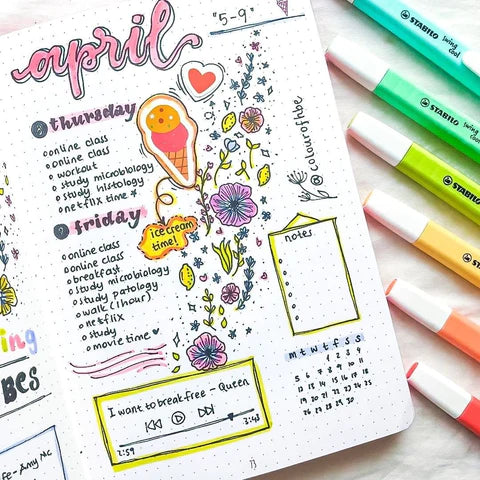 april
"5-9"
8 thursday
online class
online class
workout
study microbiology
study histology
netflix time
9 friday
online class
online class
breakfast
study microbiology
study patology
walk (1 hour)
netflix
study
movie time
ice cream
time!
@colourofshbe
notes
m t w t f s s
1 2 3 4
5 6 7 8 9 10 11
12 13 14 15 16 17 18
19 20 21 22 23 24 25
26 27 28 29 30
I want to break free - Queen
2:59 3:43
ing
BES
Fe - Amy Mc
13
STABILO swing cool
STABILO swing cool
STABILO
STABILO
STABILO